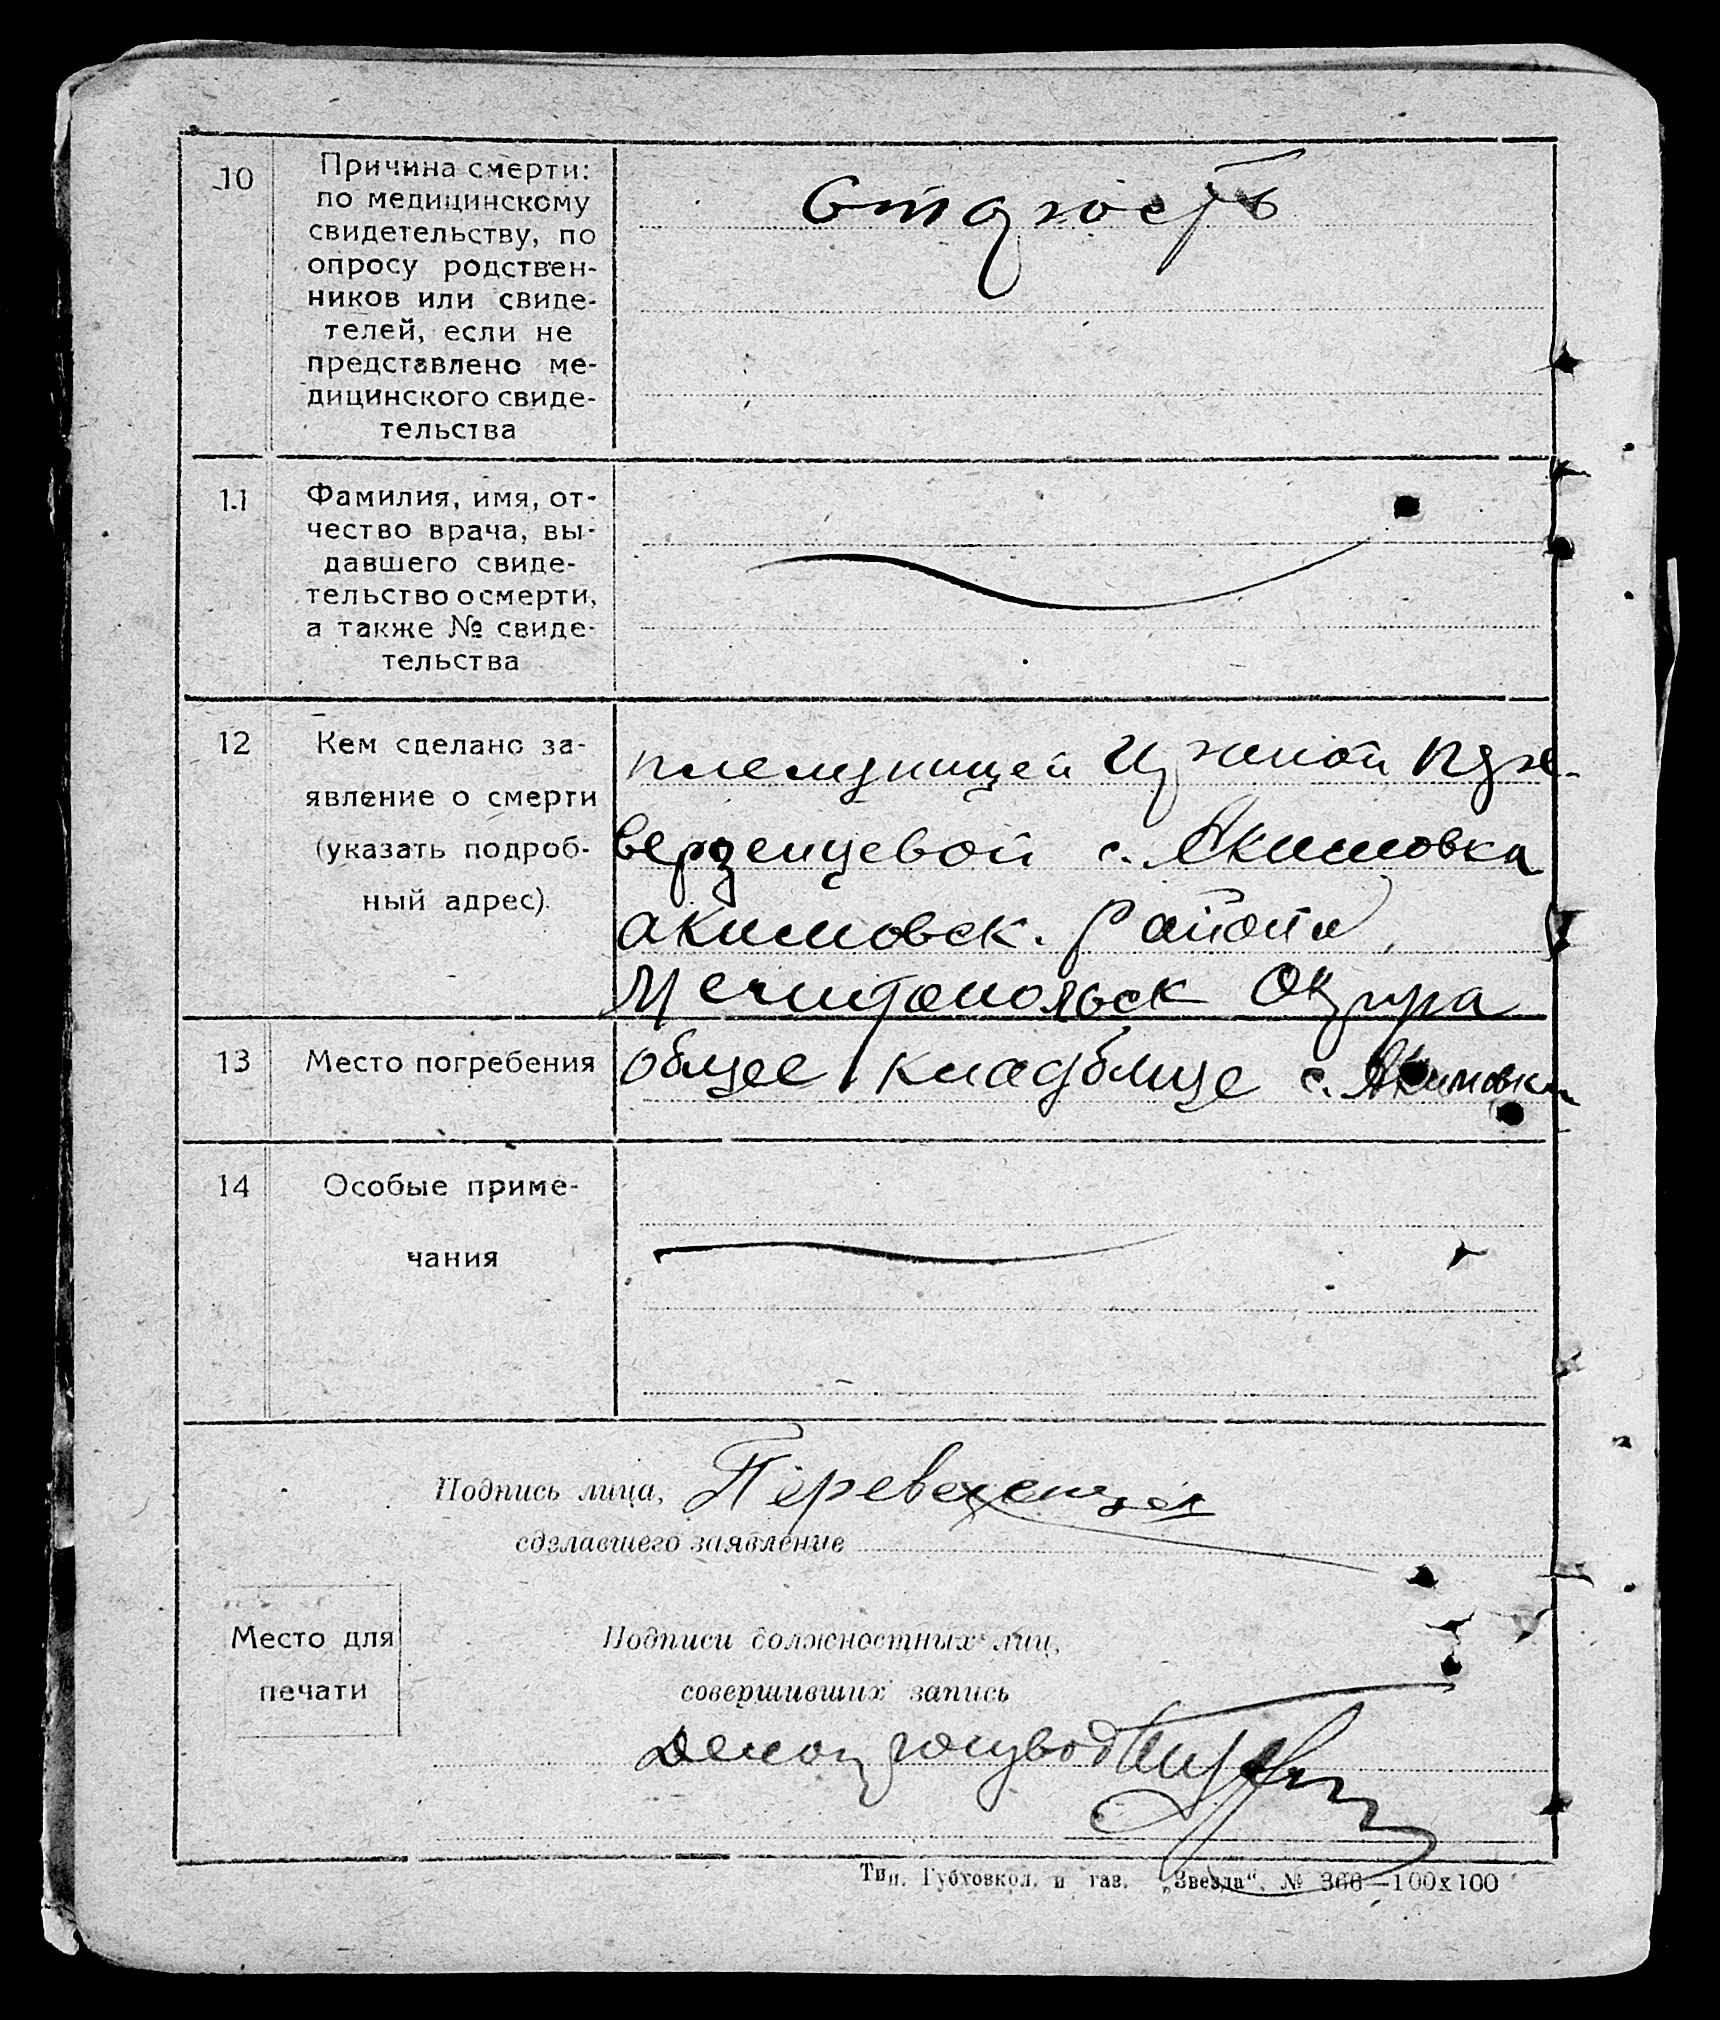 10
Причина смерти:
по медицинскому
свидетельству, по
опросу родствен-
ников или свиде-
телей, если не
представлено ме-
дицинского свиде-
тельства
Старость
11
Фамилия, имя, от-
чество врача, вы-
давшего свиде-
тельство о смерти,
а также № свиде-
тельства
12
Кем сделано за-
явление о смерти
(указать подроб-
ный адрес).
племяницей
верзенцевой с. Акимовка
акимовск. района
Мелитопольск Округа
13
Место погребения
общее кладбище с. Акимовка
14
Особые приме-
чания
Подпись лица,
сделавшего заявление
Место для
печати
Подписи должностных лиц,
совершивших запись
Делопроизвод
Тип. Губтовкол. и газ. „Звезда“. № 366—100х100